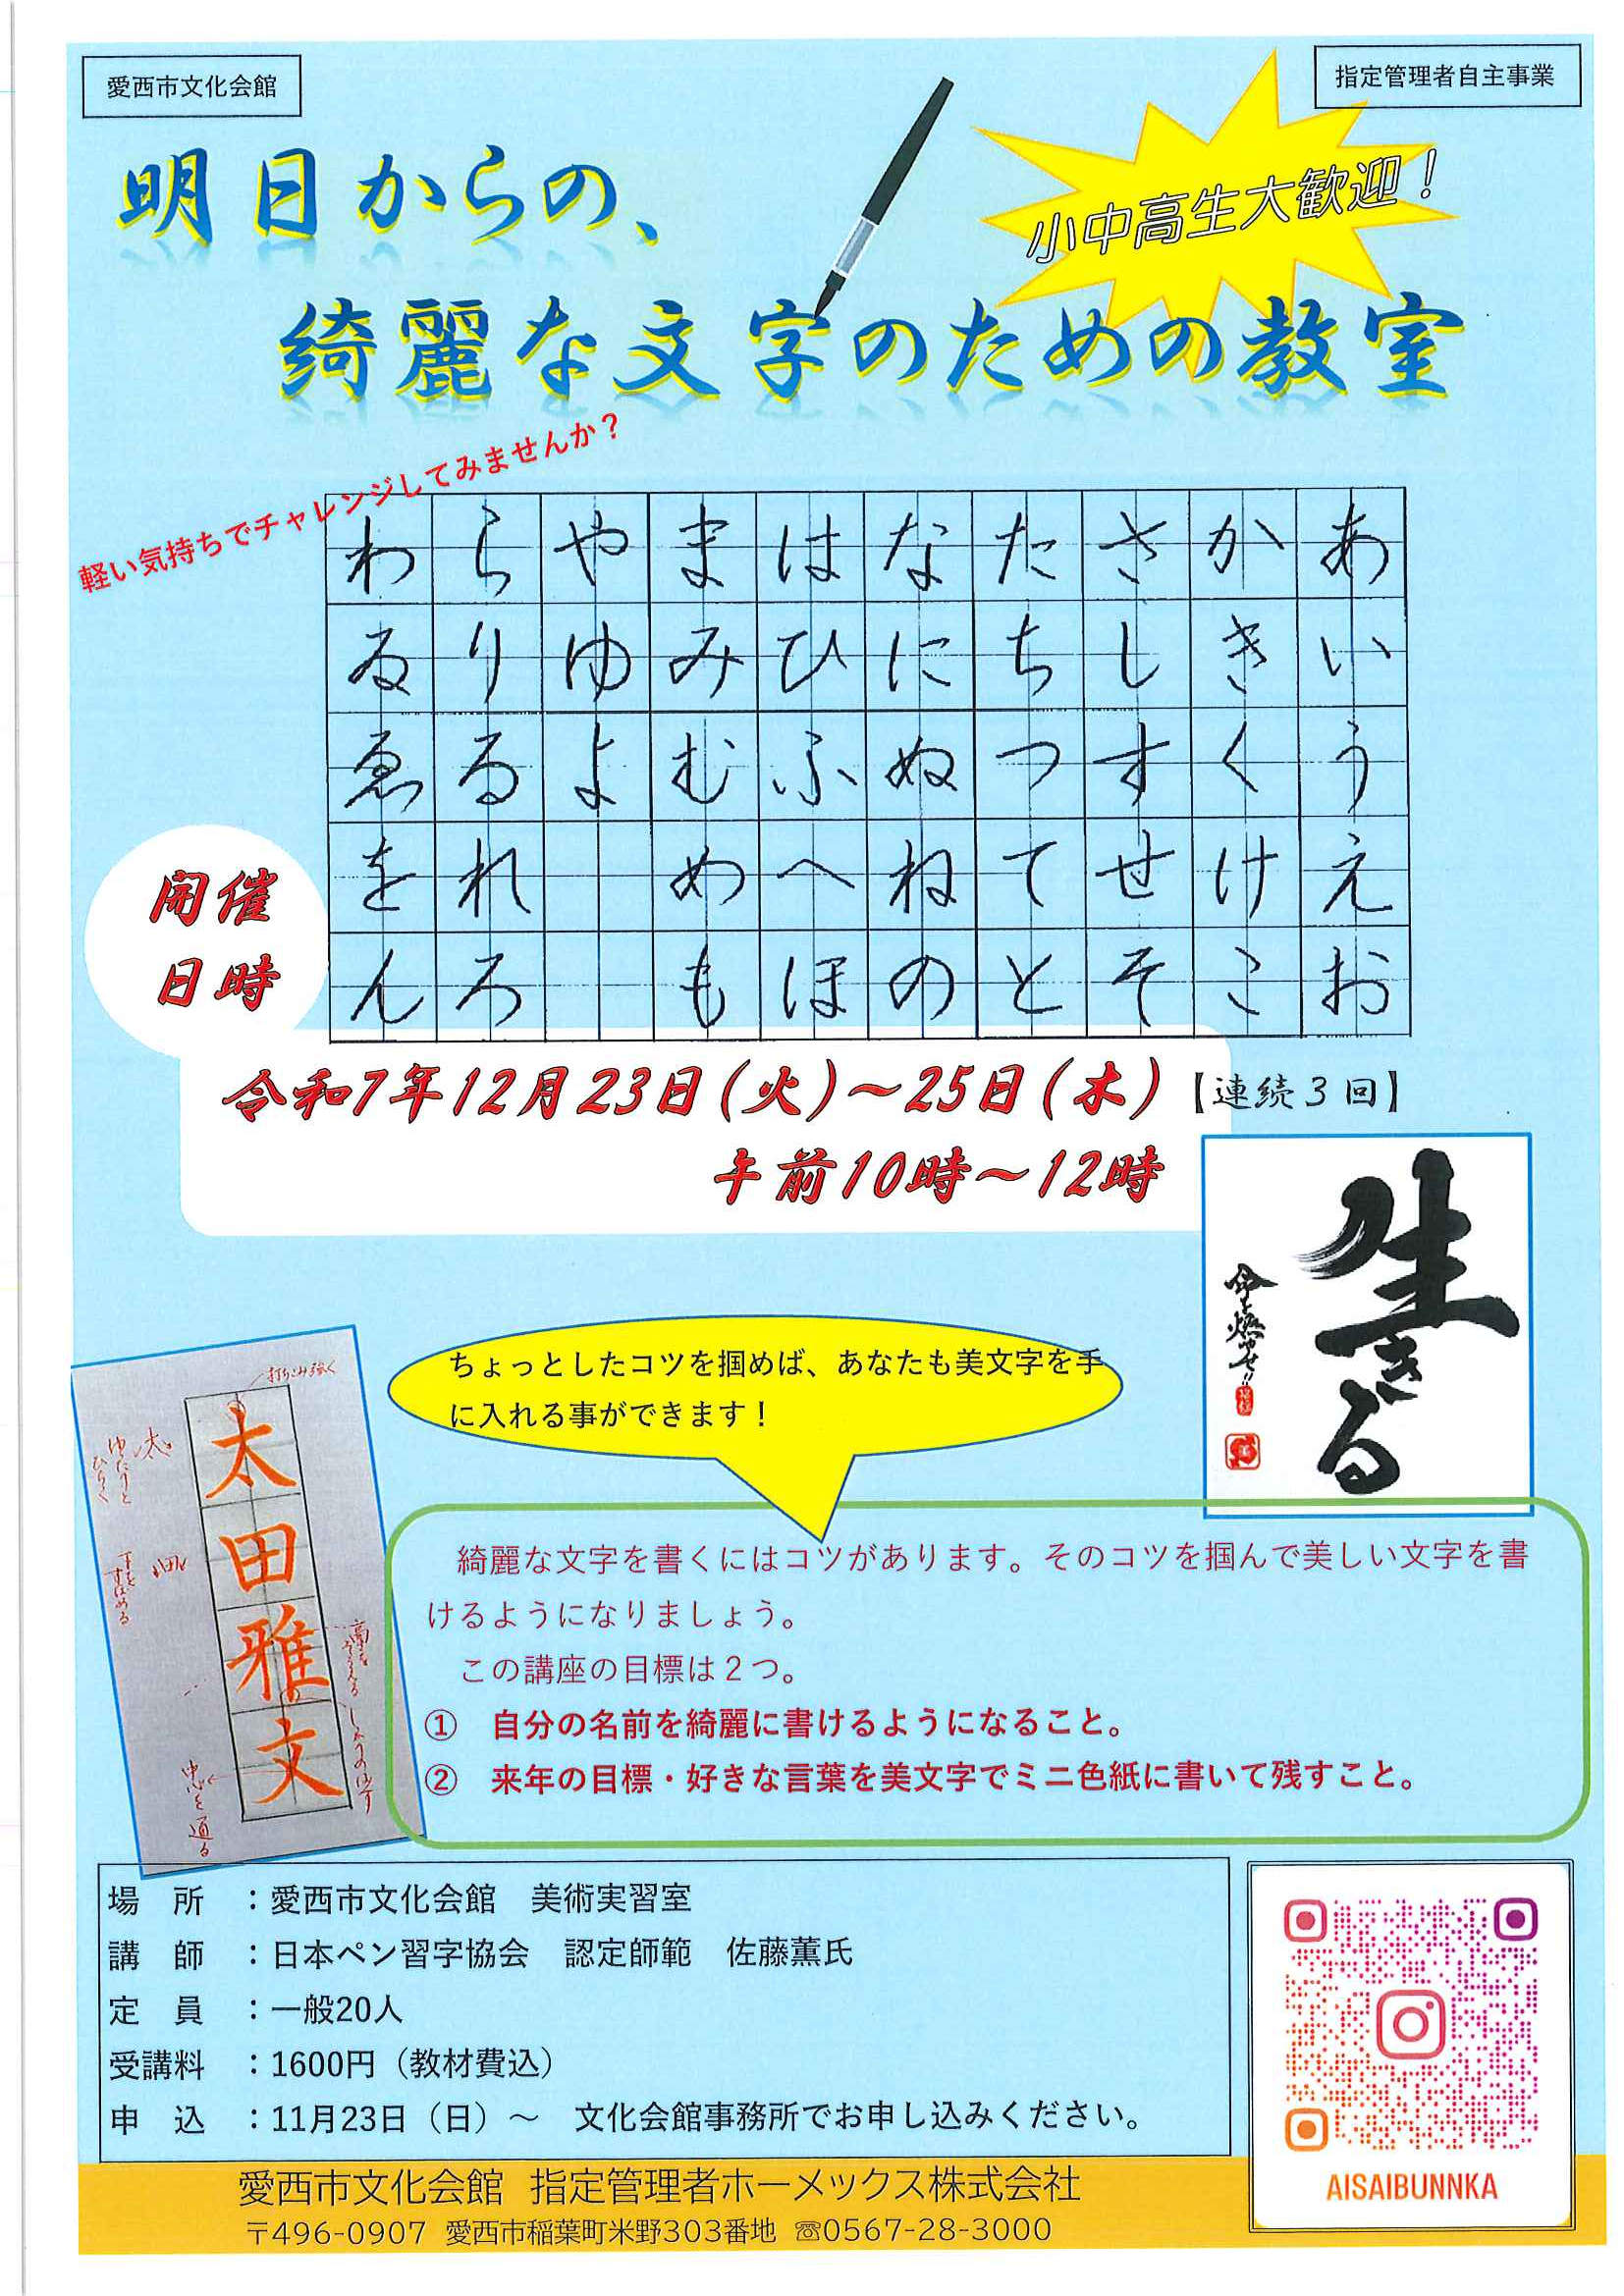 愛西市文化会館
指定管理者自主事業
明日からの、
小中高生大歓迎！
綺麗な文字のための教室
軽い気持ちでチャレンジしてみませんか？
わ ら や ま は な た さ か あ
ゐ り ゆ み ひ に ち し き い
ゑ る よ む ふ ぬ つ す く う
を れ め へ ね て せ け え
ん ろ も ほ の と そ こ お
開催
日時
令和7年12月23日（火）～25日（木）【連続３回】
午前10時～12時
生きる
命を燃やせ!!
ちょっとしたコツを掴めば、あなたも美文字を手
に入れる事ができます！
打ちこみ強く
太
ゆったりと
ひらく
太田雅文
下を
すぼめる
中心を通る
綺麗な文字を書くにはコツがあります。そのコツを掴んで美しい文字を書
けるようになりましょう。
この講座の目標は２つ。
①　自分の名前を綺麗に書けるようになること。
②　来年の目標・好きな言葉を美文字でミニ色紙に書いて残すこと。
場　所　：愛西市文化会館　美術実習室
講　師　：日本ペン習字協会　認定師範　佐藤薫氏
定　員　：一般20人
受講料　：1600円（教材費込）
申　込　：11月23日（日）～　文化会館事務所でお申し込みください。
AISAIBUNNKA
愛西市文化会館 指定管理者ホーメックス株式会社
〒496-0907 愛西市稲葉町米野303番地 ☏0567-28-3000